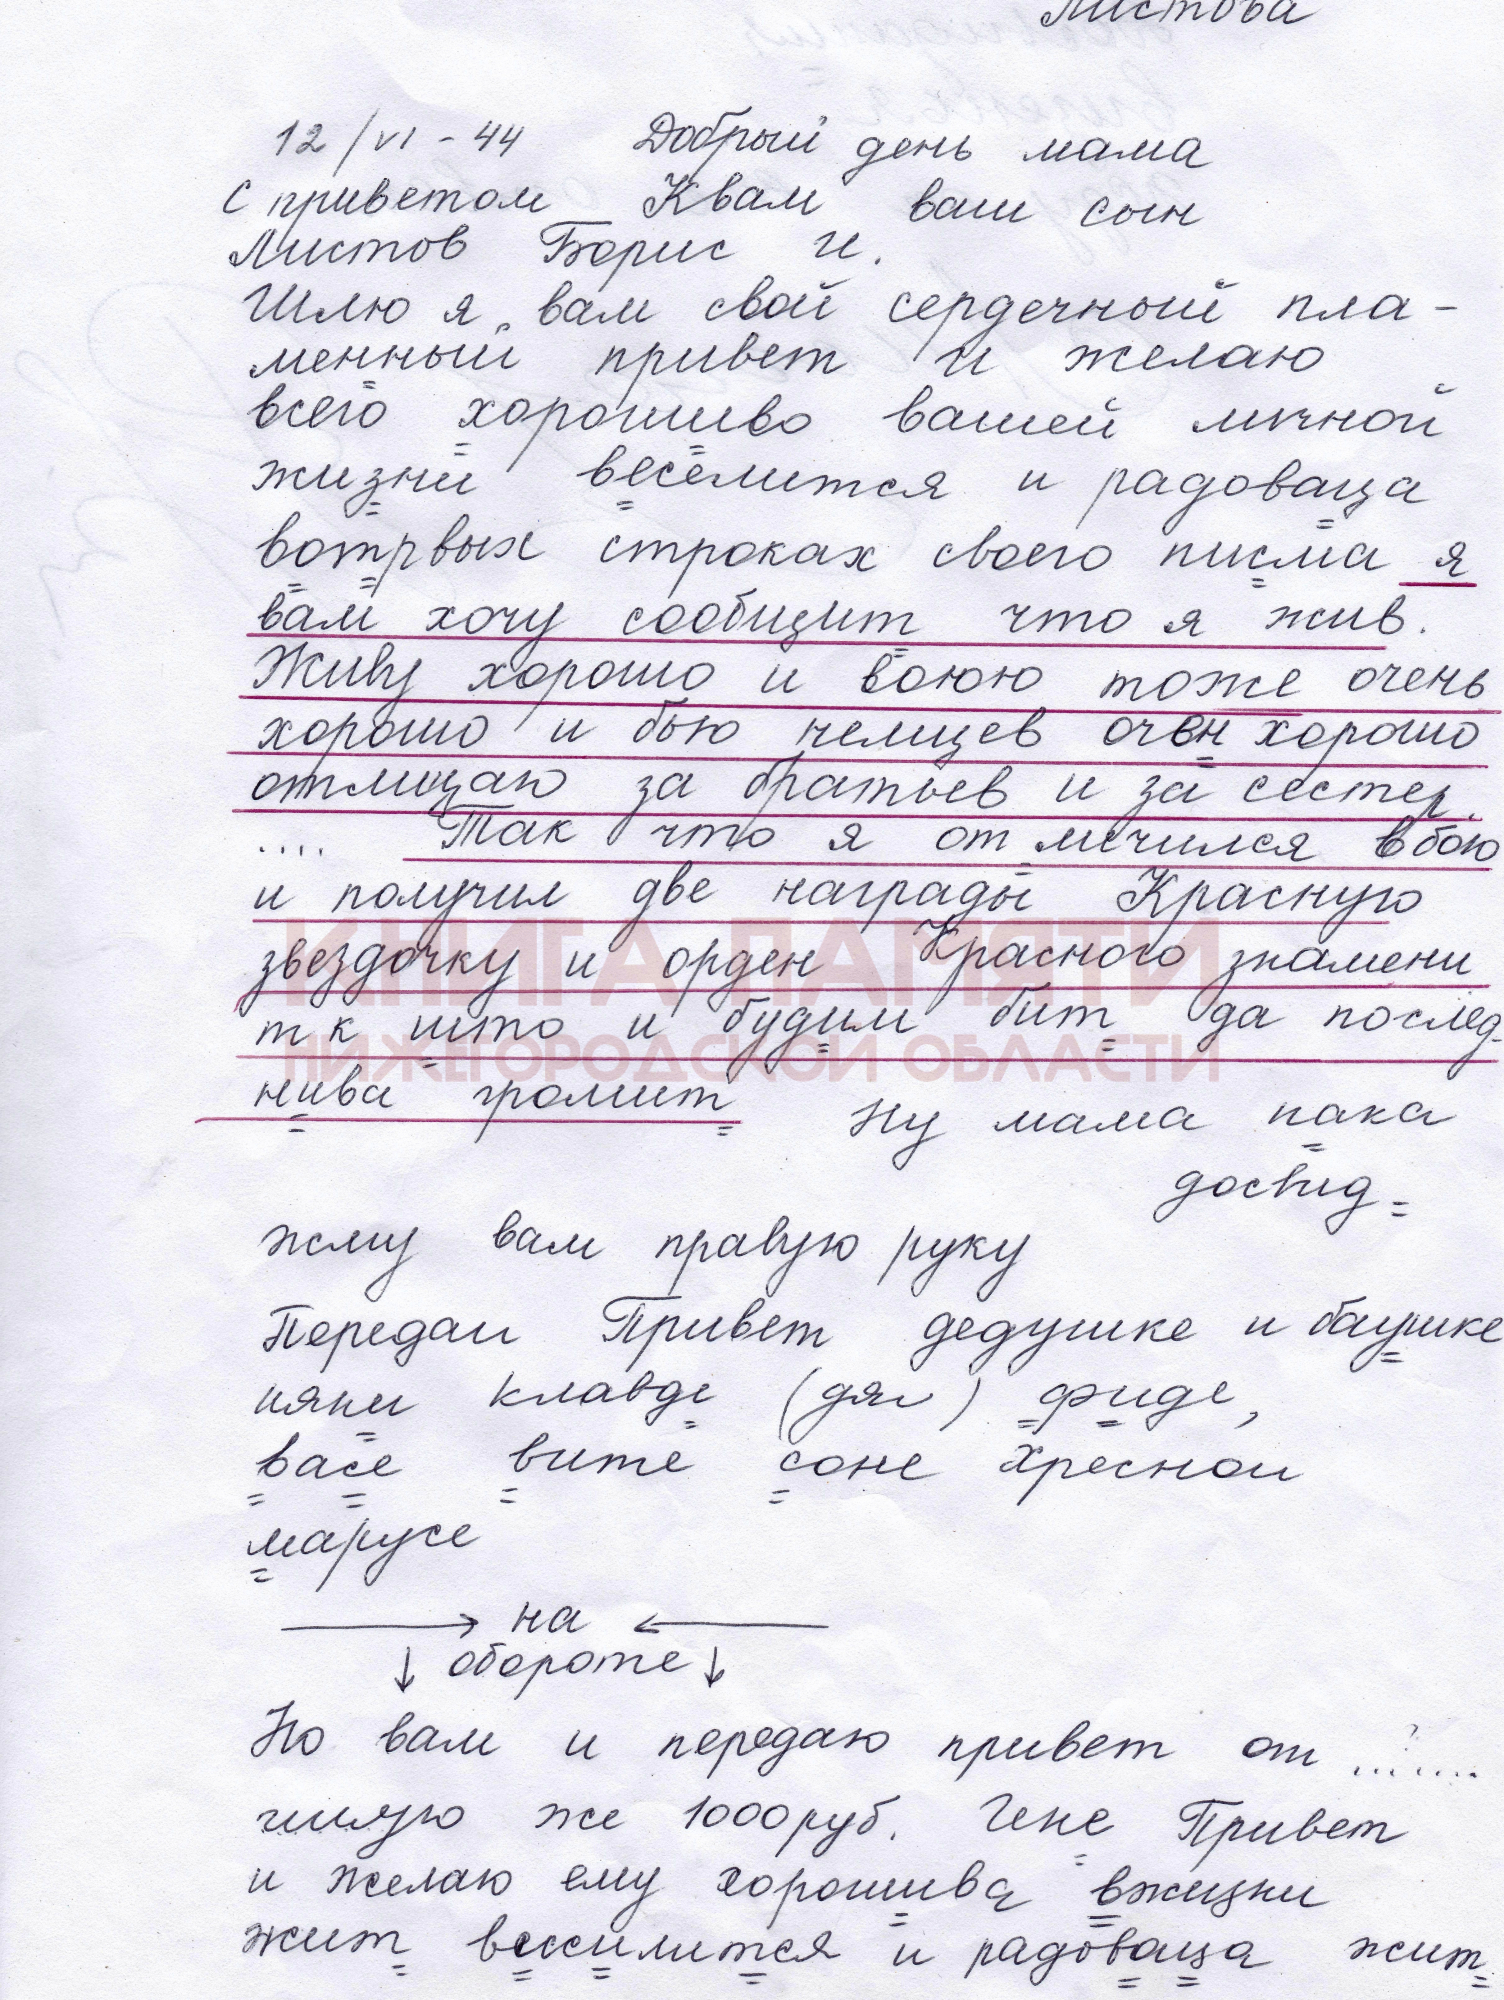 Листова
12/VI-44 Добрый день мама
с приветом Квам ваш сын
Листов Борис И.
Шлю я вам свой сердечный пла-
менный привет и желаю
всего хорошиво вашей личной
жизни веселится и радоваца
вотрвых строках своего писма я
вам хочу сообщит что я жив.
Живу хорошо и воюю тоже очень
хорошо и бью немцев очен хорошо
отмщаю за братьев и за сестер.
.... Так что я отличился вбою
и получил две награды Красную
звездочку и орден Красного знамени
КНИГА ПАМЯТИ
т к што и будим бит да послед-
НИЖЕГОРОДСКОЙ ОБЛАСТИ
нива громит Ну мама пака
досвид
жму вам правую руку
Передаи Привет дедушке и баушке
няни клавде (дяи) фиде,
васе вите соне хресной
марусе
на
обороте
Но вам и передаю привет от .......
же 1000 руб. Гене Привет
и желаю ему хорошива вжизни
жит весилится и радоваца жит